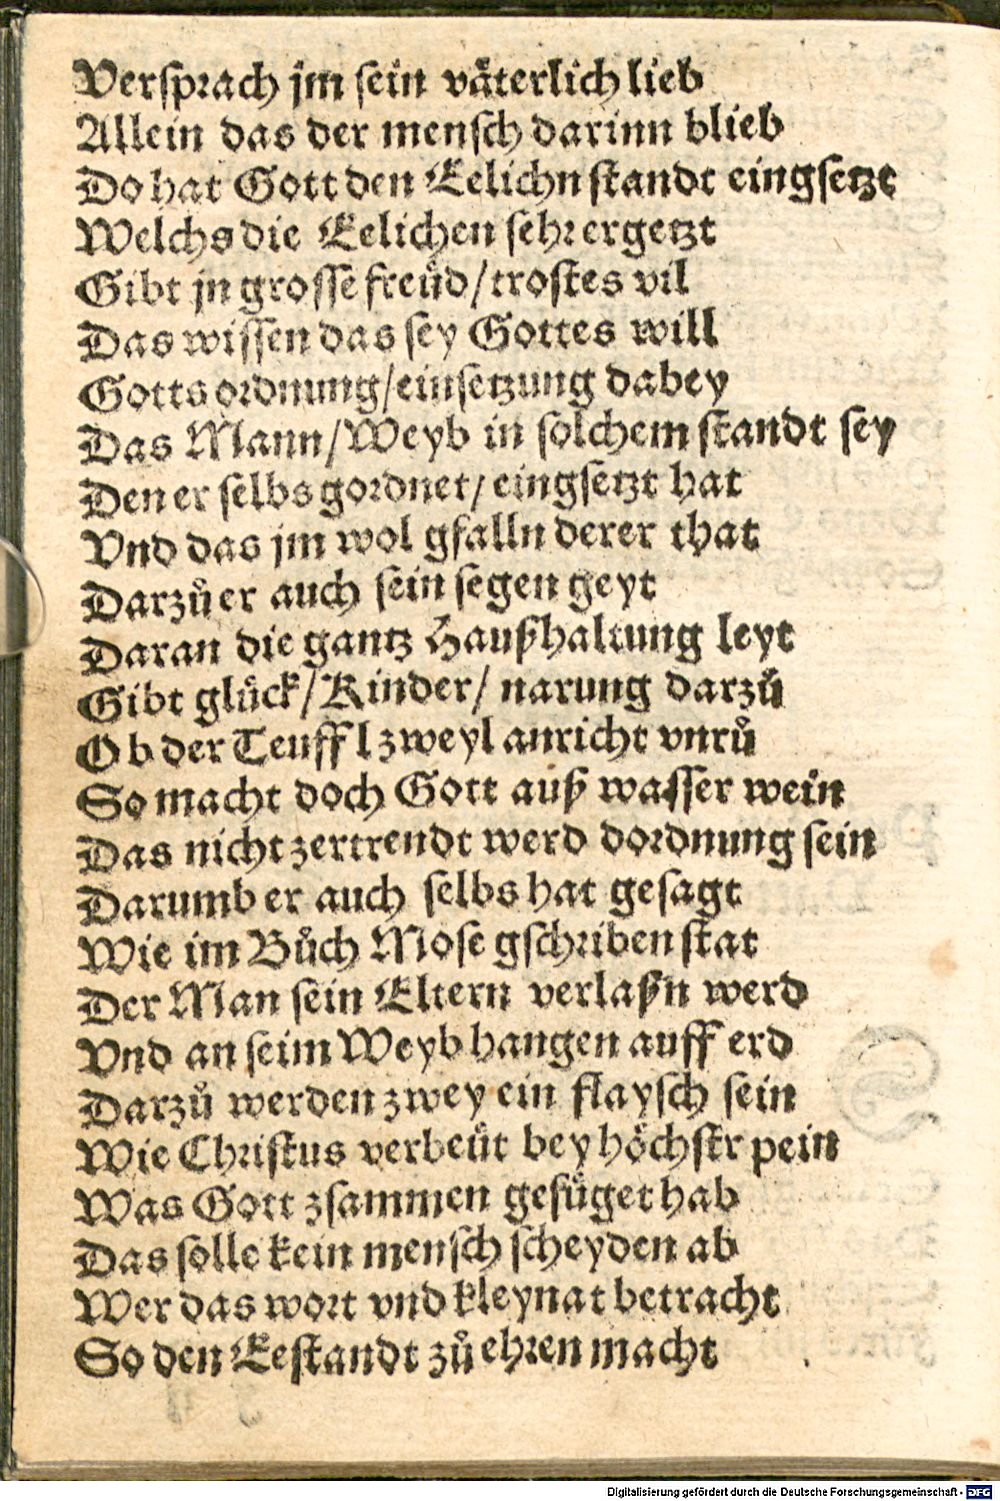 Versprach jm sein väterlich lieb
Allein das der mensch darinn blieb
Do hat Gott den Eelichn standt eingsetzt
Welchs die Eelichen sehr ergetzt
Gibt jn grosse freüd/trostes vil
Das wissen das sey Gottes will
Gotts ordnung/einsetzung dabey
Das Mann/Weyb in solchem standt sey
Den er selbs gordnet/eingsetzt hat
Vnd das jm wol gfalln derer that
Darzů er auch sein segen geyt
Daran die gantz Haußhaltung leyt
Gibt glück/Kinder/narung darzů
Ob der Teuffl zweyl anricht vnrů
So macht doch Gott auß wasser wein
Das nicht zertrendt werd dordnung sein
Darumb er auch selbs hat gesagt
Wie im Bůch Mose gschriben stat
Der Man sein Eltern verlaßn werd
Vnd an seim Weyb hangen auff erd
Darzů werden zwey ein flaysch sein
Wie Christus verbeüt bey höchstr pein
Was Gott zsammen gefüget hab
Das solle kein mensch scheyden ab
Wer das wort vnd kleynat betracht
So den Eestandt zů ehren macht
Digitalisierung gefördert durch die Deutsche Forschungsgemeinschaft - DFG